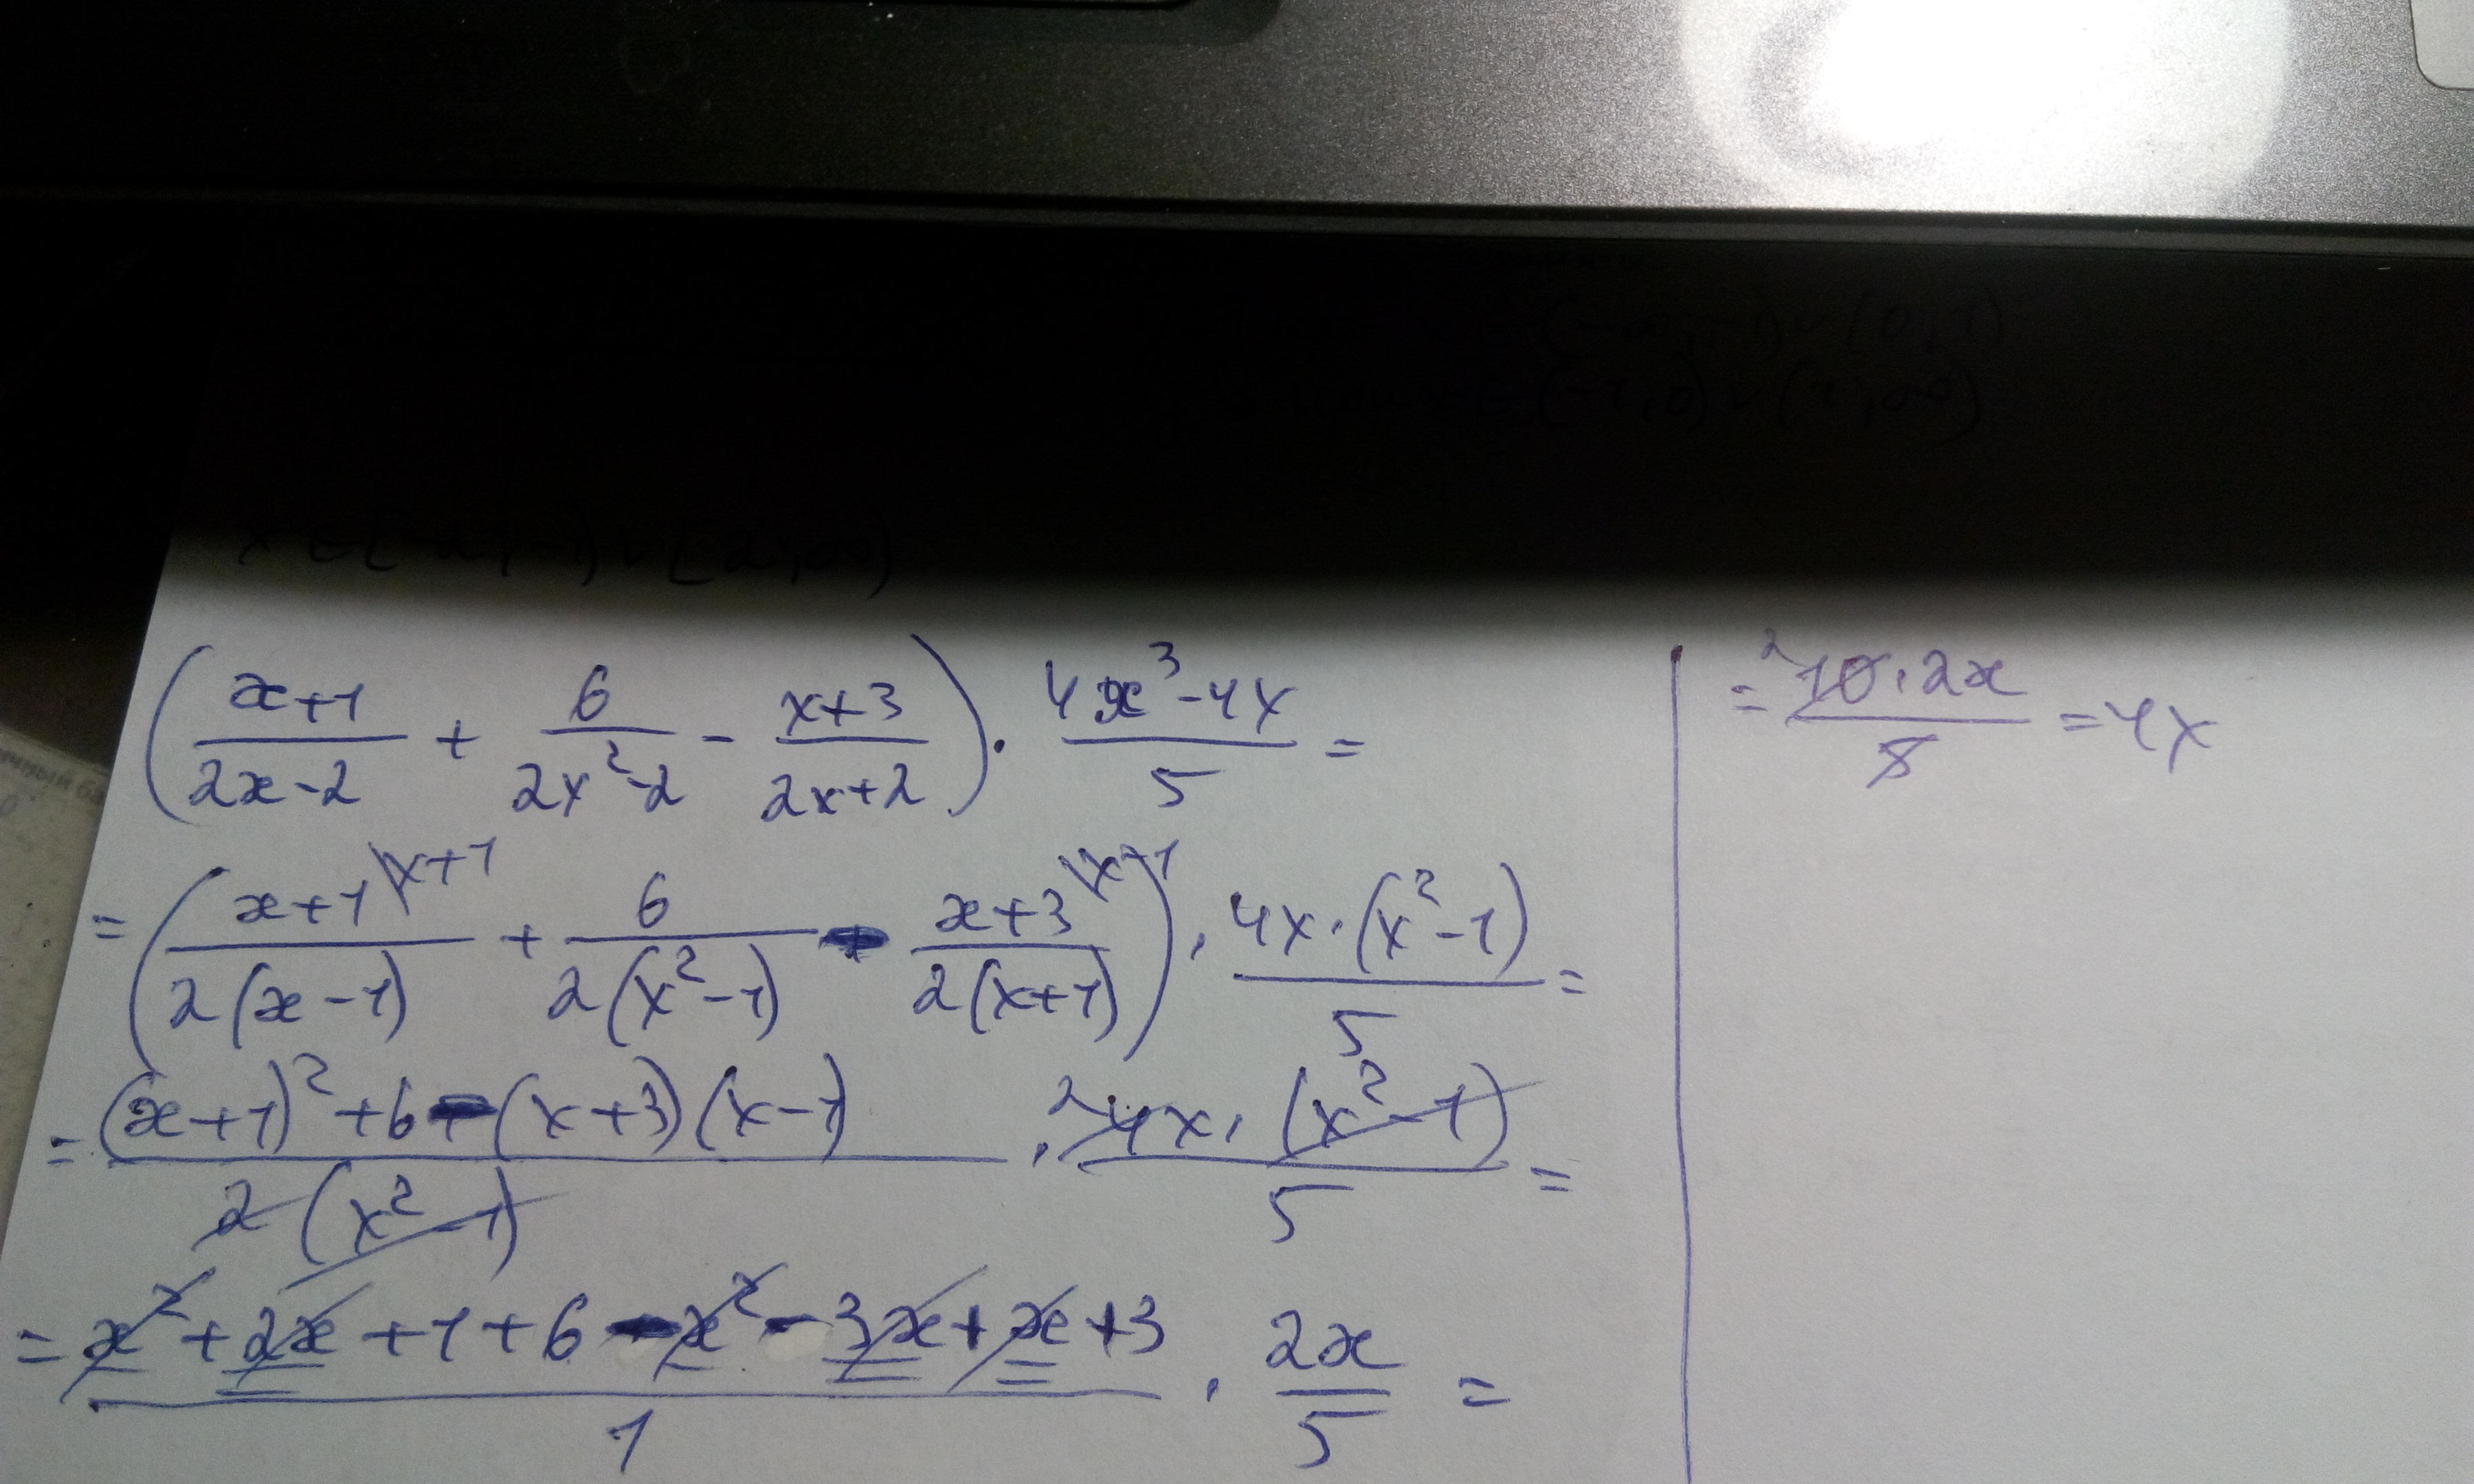 x ∈ [-1; -1) ∪ [2; ∞)
( (x+1)/(2x-2) + 6/(2x²-2) - (x+3)/(2x+2) ) · (4x³-4x)/5 =
= ( (x+1)^{\x+1}/(2(x-1)) + 6/(2(x²-1)) - (x+3)^{\x-1}/(2(x+1)) ) · (4x·(x²-1))/5 =
= ((x+1)²+6-(x+3)(x-1))/(2(x²-1)) · (²4x·(x²-1))/5 =
= (x²+2x+1+6-x²-3x+x+3)/1 · 2x/5 =
= (²10·2x)/5 = 4x